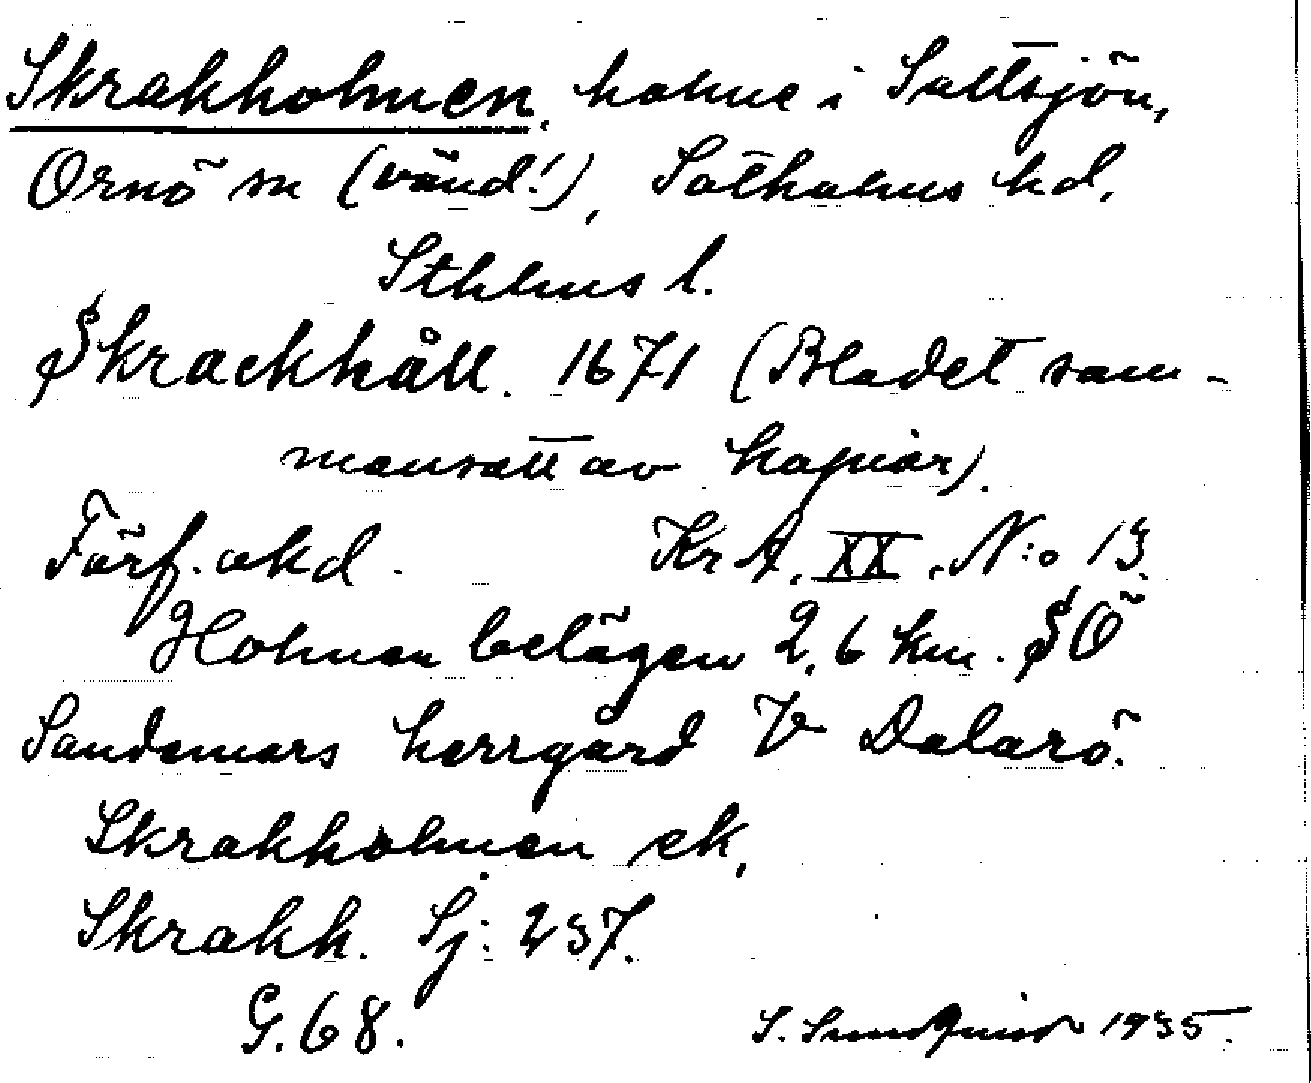 Skrakholmen, holme i Saltsjön,
Ornö sn (vänd!), Sotholms hd,
Sthlms l.
Skrackhåll. 1671 (Bladet sam-
mansatt av kopior).
Förf. okd. Kr A. XX. N:o 13.
Holmen belägen 2,6 km. SÖ
Sandemars herrgård V Dalarö.
Skrakholmen ek,
Skrakh. Sj: 237.
G. 68. S. Sundquist 1935.